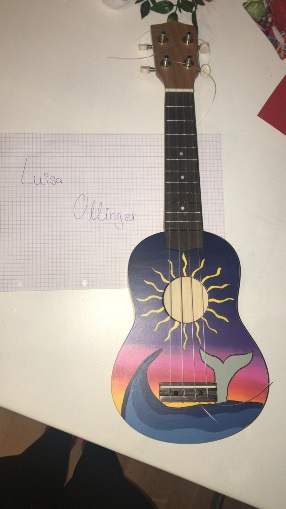 Luisa
Ollinger